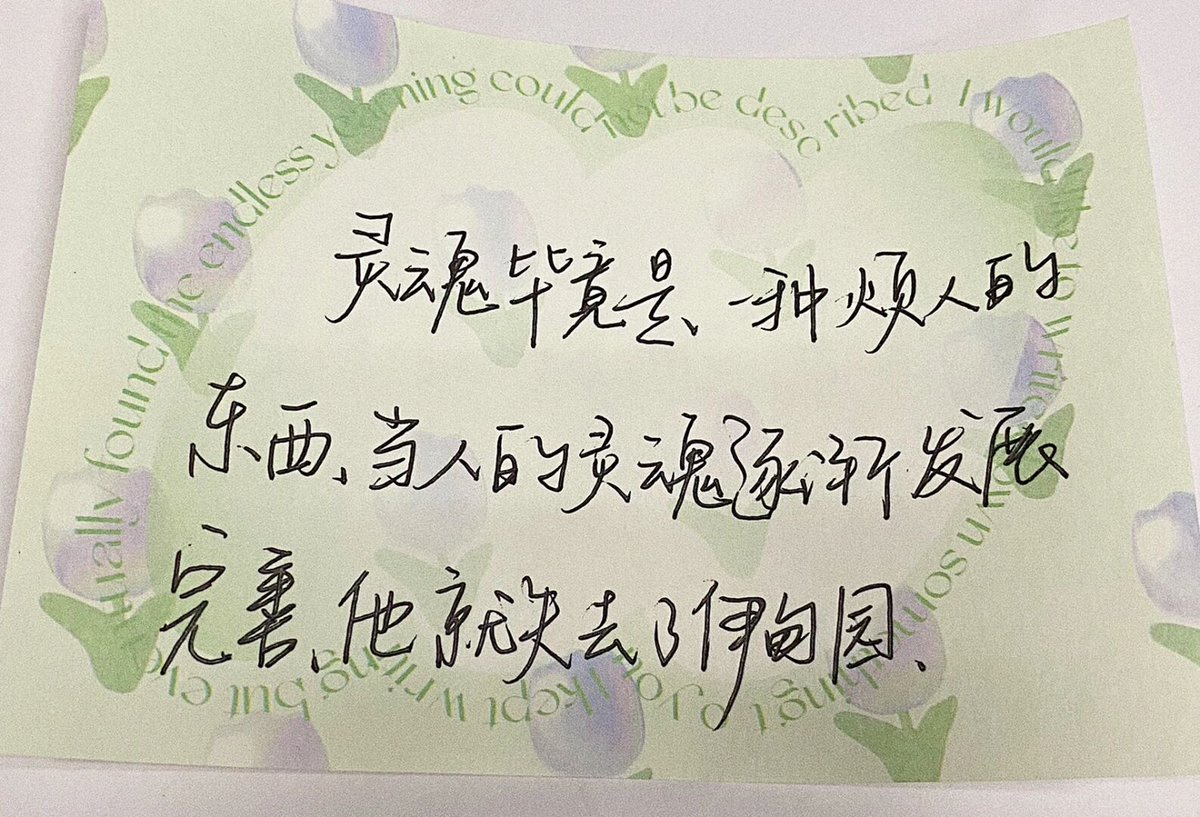 灵魂毕竟是一种烦人的
东西、当人的灵魂逐渐发展
完善、他就失去了伊甸园.
I would like to write down something to you I kept writing but eventually found the endless yearning could not be described